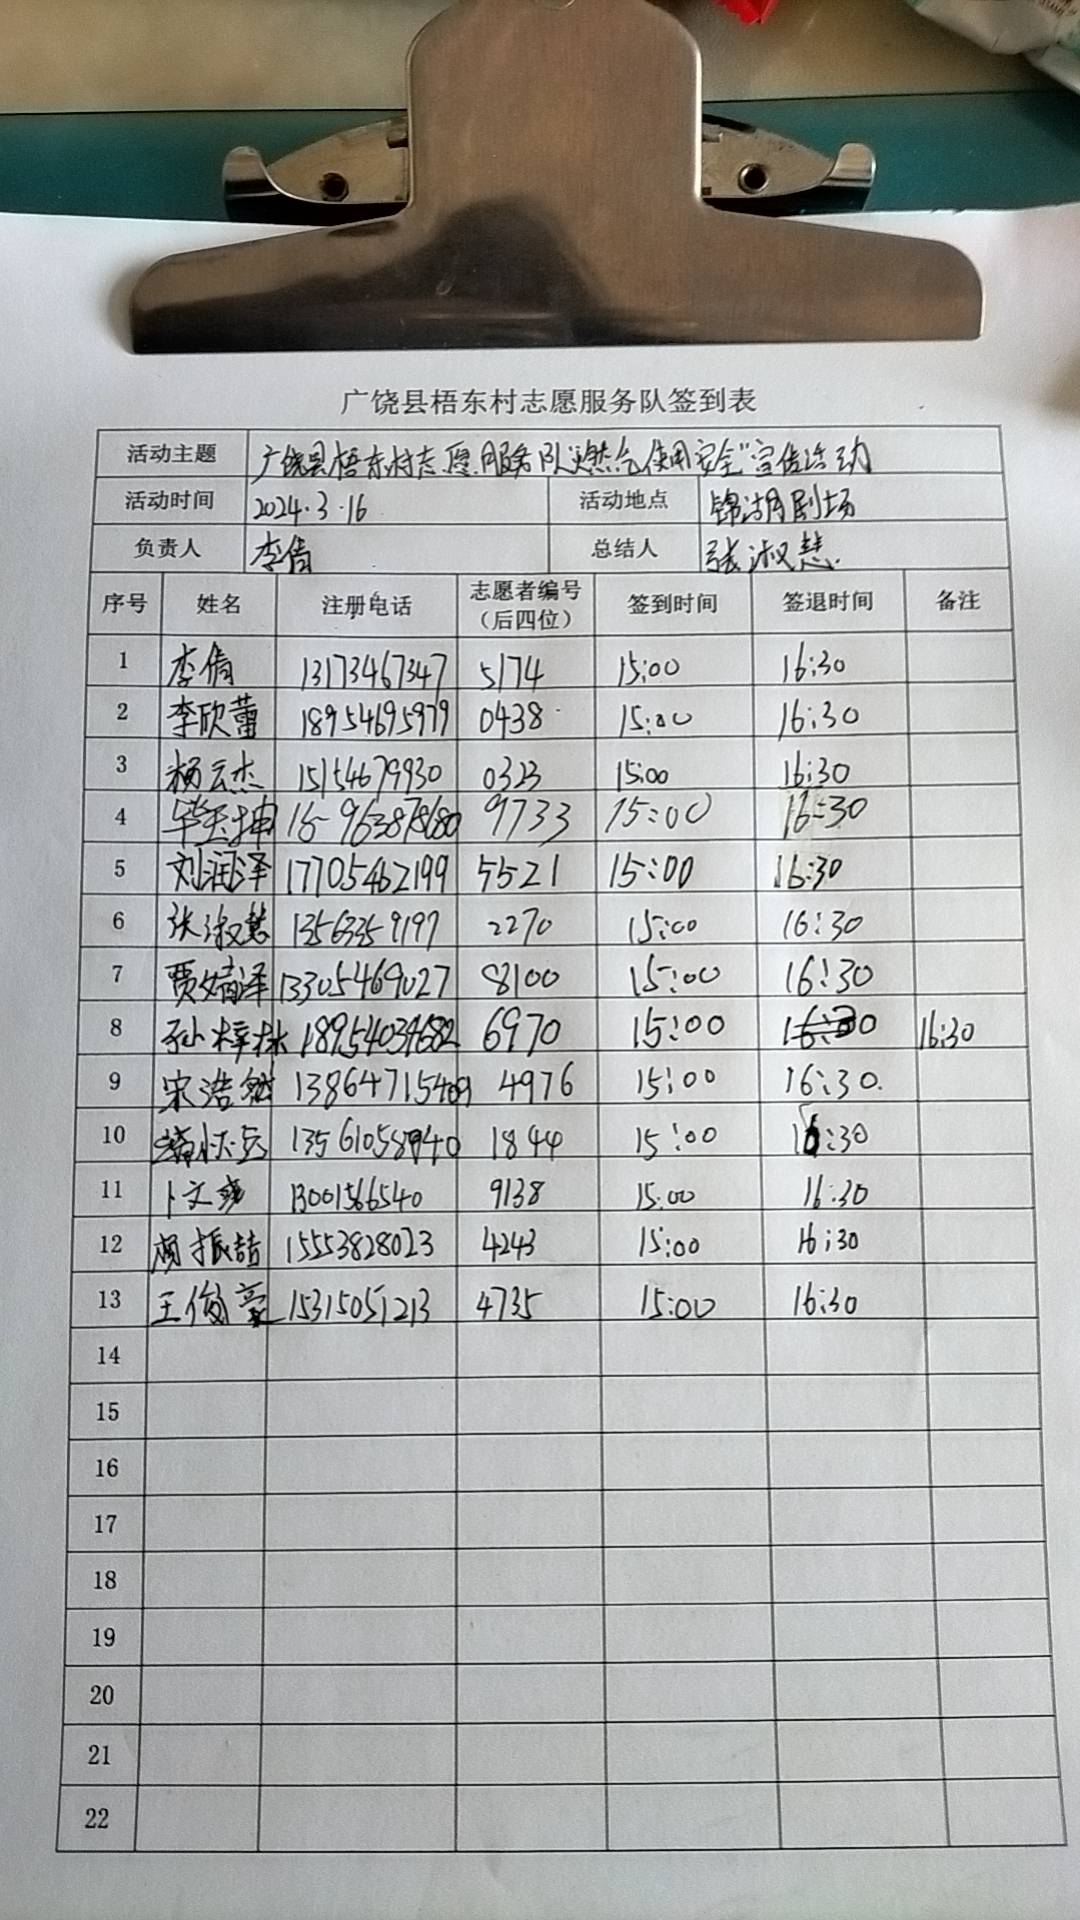 广饶县梧东村志愿服务队签到表
活动主题 广饶县梧东村志愿服务队"燃气使用安全"宣传活动
活动时间 2024.3.16 活动地点 锦湖剧场
负责人 李倩 总结人 张淑慧
序号 姓名 注册电话 志愿者编号（后四位） 签到时间 签退时间 备注
1 李倩 13173467347 5174 15:00 16:30
2 李欣蕾 18954695979 0438 15:00 16:30
3 杨云杰 15154679930 0323 15:00 16:30
4 9733 15:00 16:30
5 刘润泽 17705462199 5521 15:00 16:30
6 张淑慧 13563359197 2270 15:00 16:30
7 贾婧泽 13305469027 8100 15:00 16:30
8 孙梓林 6970 15:00 16:30
9 宋浩然 13864715409 4976 15:00 16:30
10 13561058940 1844 15:00 16:30
11 卜文 13001566540 9138 15:00 16:30
12 振喆 15553828023 4243 15:00 16:30
13 王俊豪 15315051213 4735 15:00 16:30
14
15
16
17
18
19
20
21
22